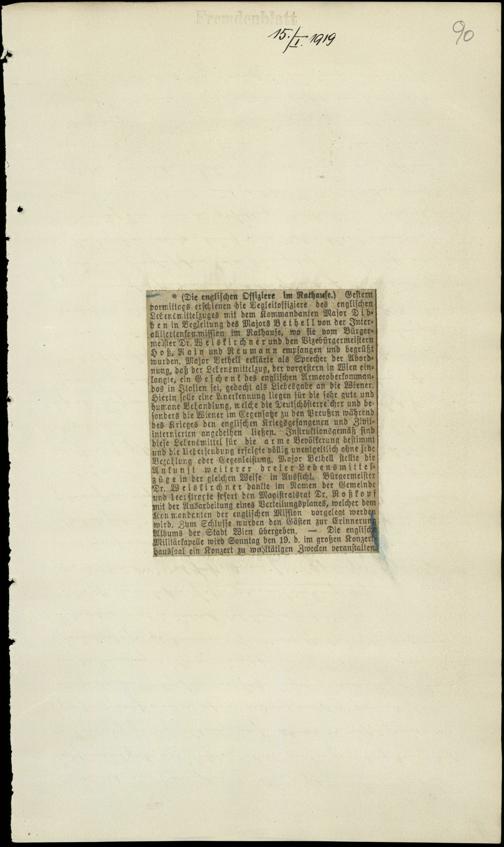 Fremdenblatt
15./I. 1919
90
* (Die englischen Offiziere im Rathause.) Gestern
vormittags erschienen die Begleitoffiziere des englischen
Lebensmittelzuges mit dem Kommandanten Major Dib-
den in Begleitung des Majors Bethell von der Inter-
alliiertenkommission im Rathause, wo sie vom Bürger-
meister Dr. Weiskirchner und den Vizebürgermeistern
Hoß, Rain und Reumann empfangen und begrüßt
wurden. Major Bethell erklärte als Sprecher der Abord-
nung, daß der Lebensmittelzug, der vorgestern in Wien ein-
langte, ein Geschenk des englischen Armeeoberkomman-
dos in Italien sei, gedacht als Liebesgabe an die Wiener.
Hierin solle eine Anerkennung liegen für die sehr gute und
humane Behandlung, welche die Deutschösterreicher und be-
sonders die Wiener im Gegensatze zu den Preußen während
des Krieges den englischen Kriegsgefangenen und Zivil-
internierten angedeihen ließen. Instruktionsgemäß sind
diese Lebensmittel für die arme Bevölkerung bestimmt
und die Uebersendung erfolgte völlig unentgeltlich ohne jede
Bezahlung oder Gegenleistung. Major Bethell stellte die
Ankunft weiterer dreier Lebensmittel-
züge in der gleichen Weise in Aussicht. Bürgermeister
Dr. Weiskirchner dankte im Namen der Gemeinde
und beauftragte sofort den Magistratsrat Dr. Roßkopf
mit der Ausarbeitung eines Verteilungsplanes, welcher dem
Kommandanten der englischen Mission vorgelegt werden
wird. Zum Schlusse wurden den Gästen zur Erinnerung
Albums der Stadt Wien übergeben. — Die englische
Militärkapelle wird Sonntag den 19. d. im großen Konzert-
haussaal ein Konzert zu wohltätigen Zwecken veranstalten.